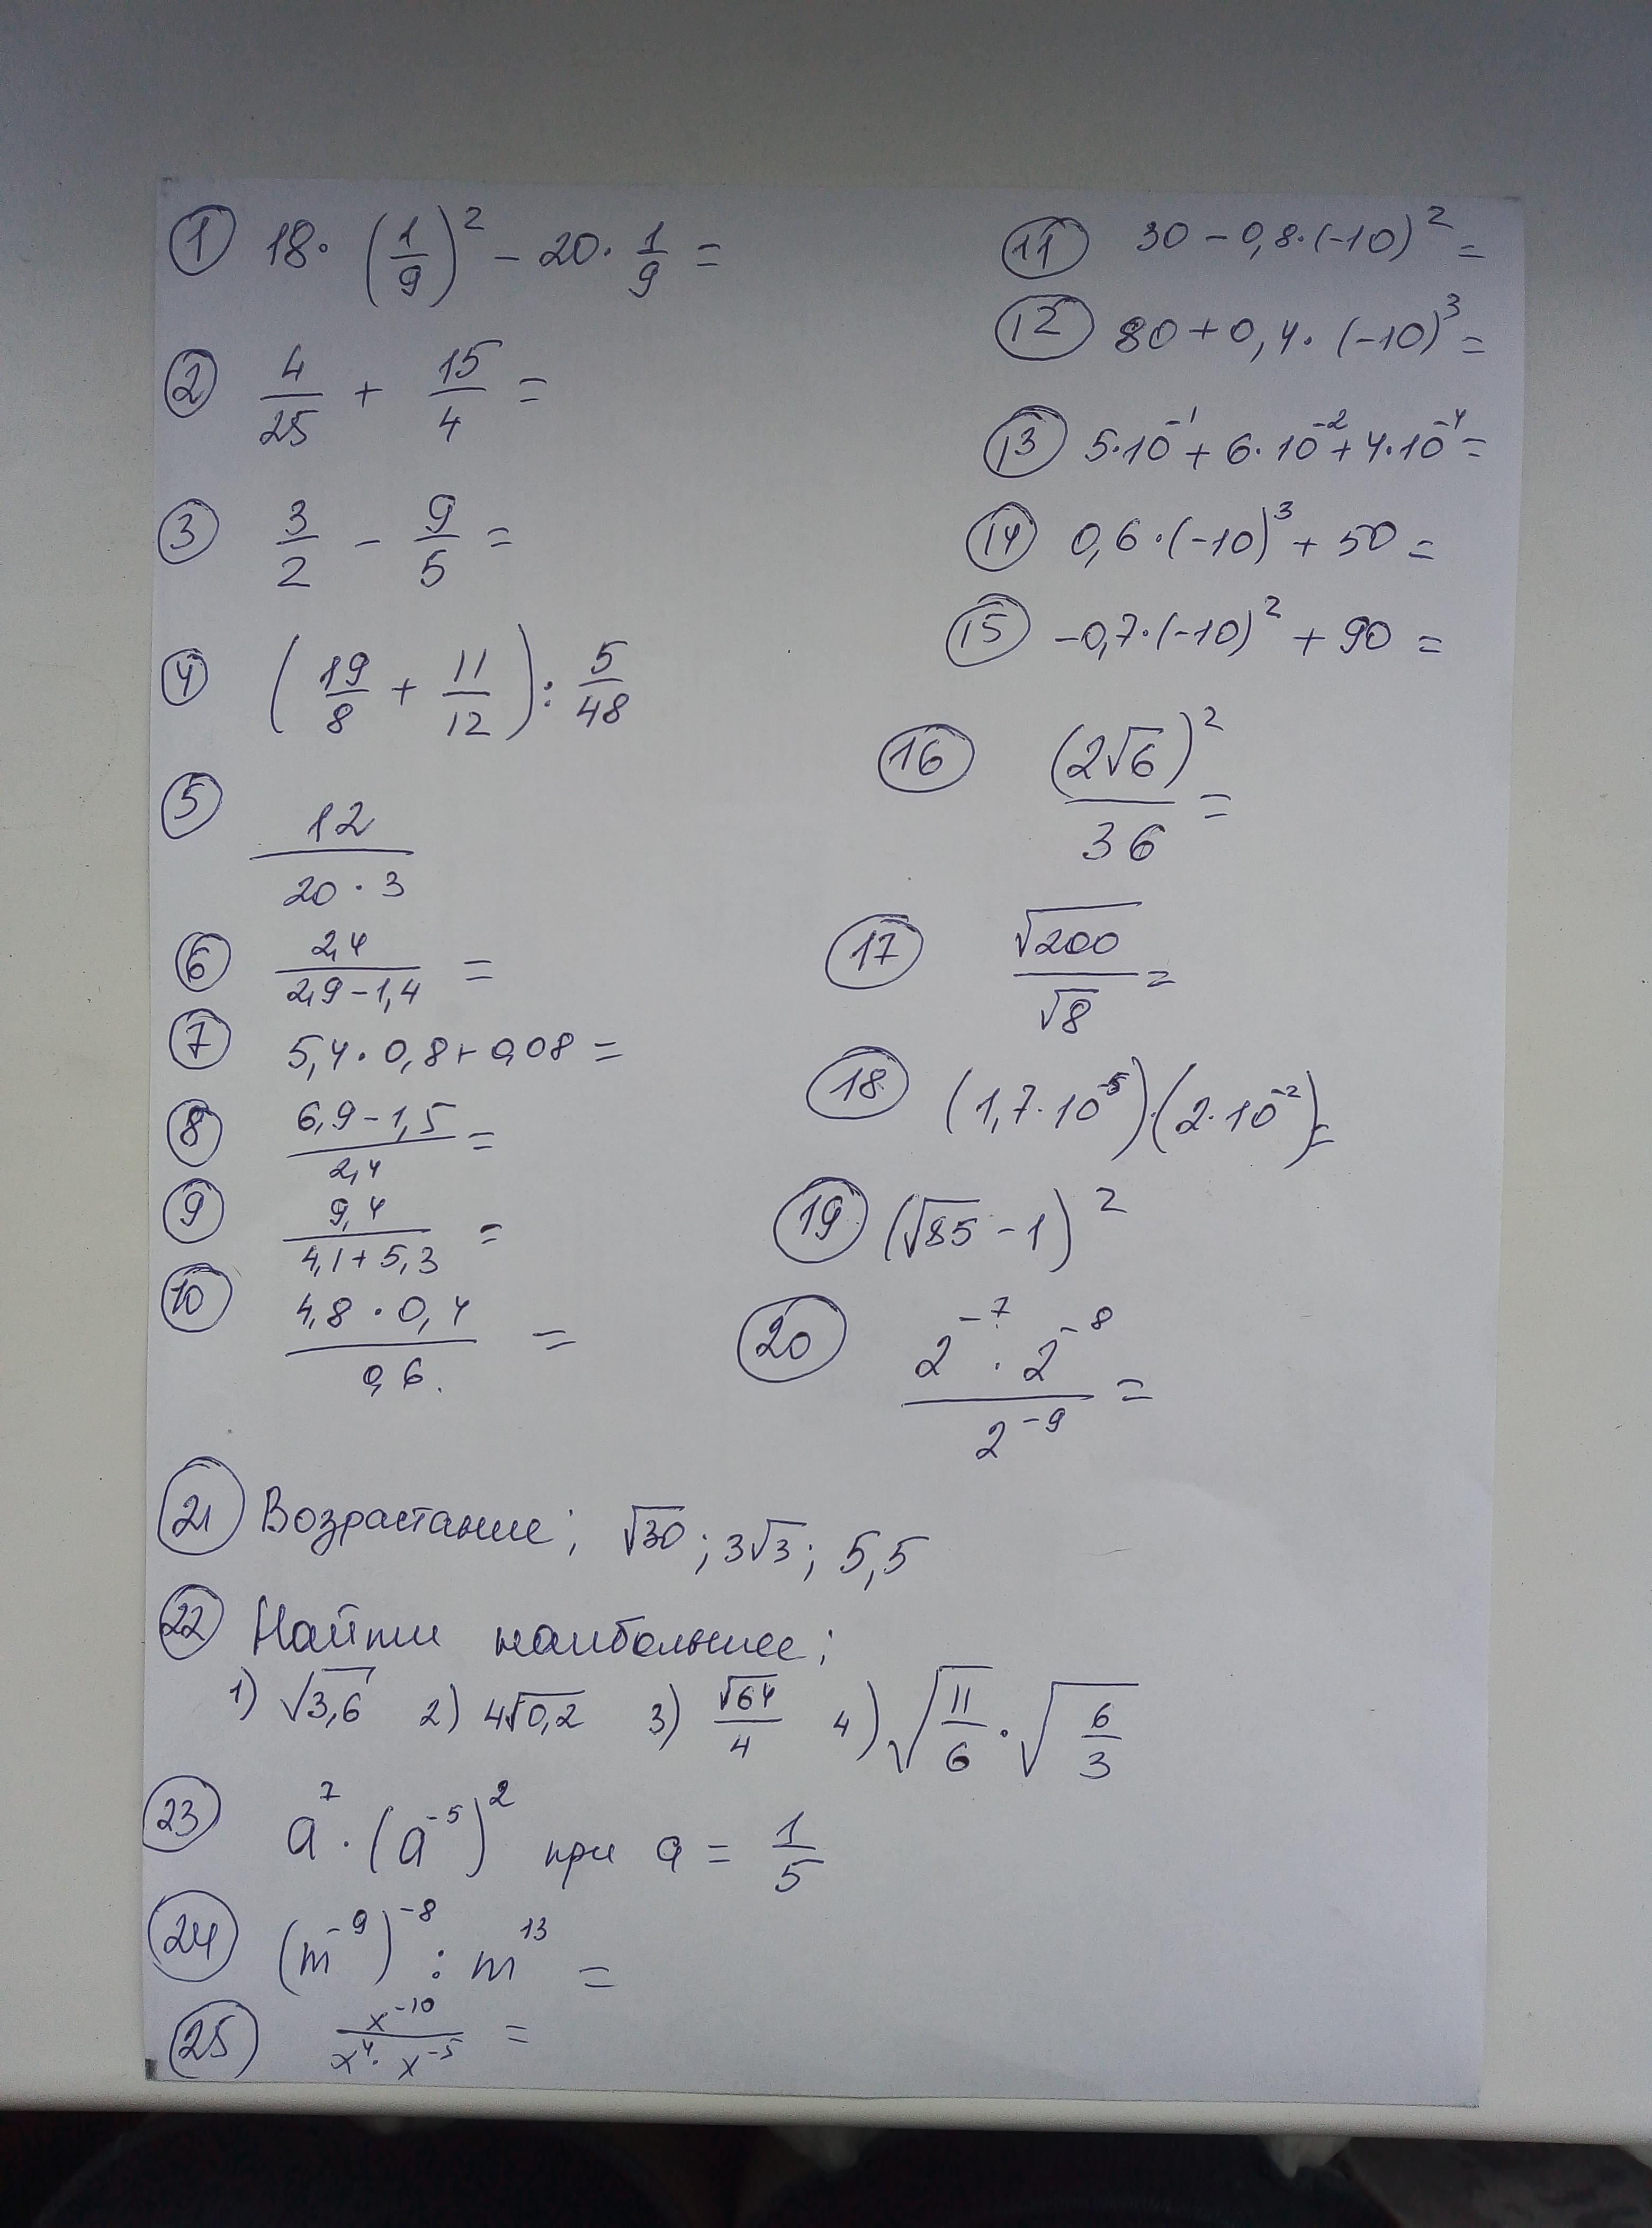 ① 18·(1/9)² − 20·1/9 =
② 4/25 + 15/4 =
③ 3/2 − 9/5 =
④ (19/8 + 11/12) : 5/48
⑤ 12/(20·3)
⑥ 2,4/(2,9−1,4) =
⑦ 5,4·0,8+0,08 =
⑧ (6,9−1,5)/2,4 =
⑨ 9,4/(4,1+5,3) =
⑩ (4,8·0,4)/0,6. =
⑪ 30−0,8·(−10)² =
⑫ 80+0,4·(−10)³ =
⑬ 5·10⁻¹+6·10⁻²+4·10⁻⁴ =
⑭ 0,6·(−10)³+50 =
⑮ −0,7·(−10)²+90 =
⑯ (2√6)²/36 =
⑰ √200/√8 =
⑱ (1,7·10⁻⁵)·(2·10⁻²) =
⑲ (√85−1)²
⑳ (2⁻⁷·2⁻⁸)/2⁻⁹ =
㉑ Возрастание; √30; 3√3; 5,5
㉒ Найти наибольшее;
1) √3,6 2) 4√0,2 3) √64/4 4) √(11/6)·√(6/3)
㉓ a⁷·(a⁻⁵)² при a = 1/5
㉔ (m⁻⁹)⁻⁸ : m¹³ =
㉕ x⁻¹⁰/(x⁴·x⁻⁵) =